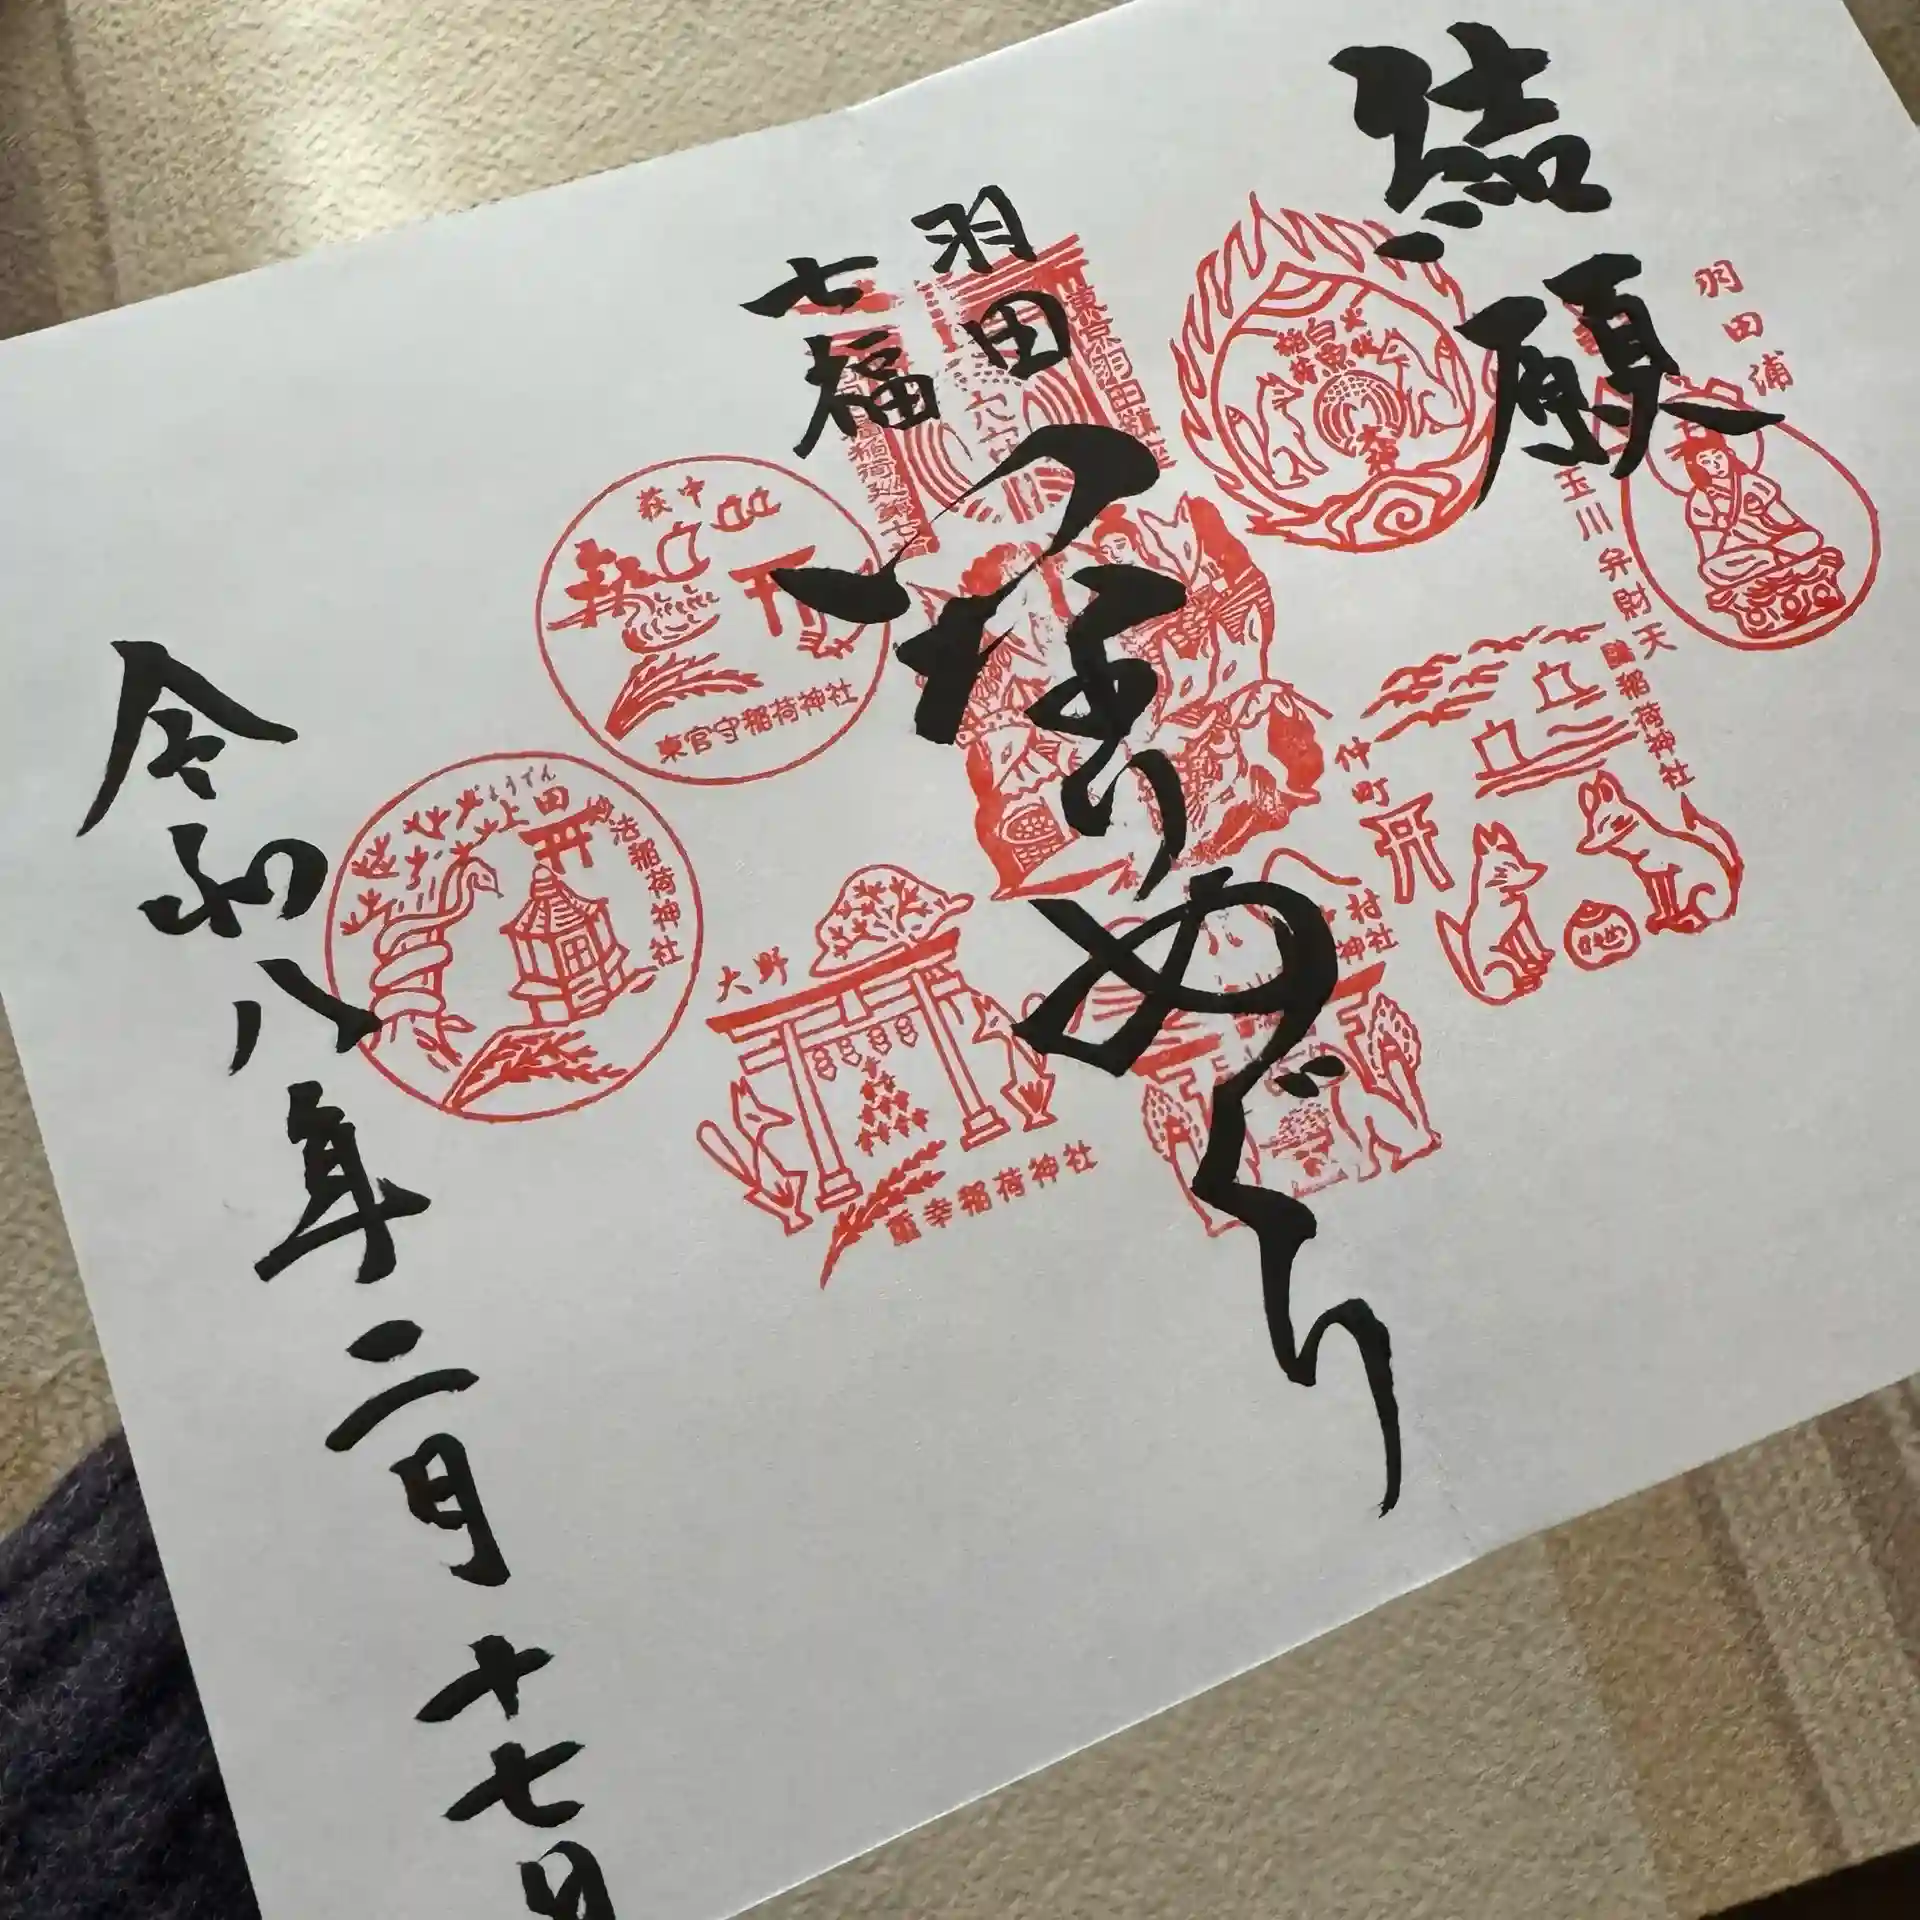 結願
羽田
七福
いなりめぐり
令和八年二月十七日
羽田浦
玉川弁財天
稲荷神社
仲町
東京羽田鎮座
穴守
福稲荷巡
白魚
稲荷
萩中
東官守稲荷神社
上田
妙法稲荷神社
大野
重幸稲荷神社
村
神社